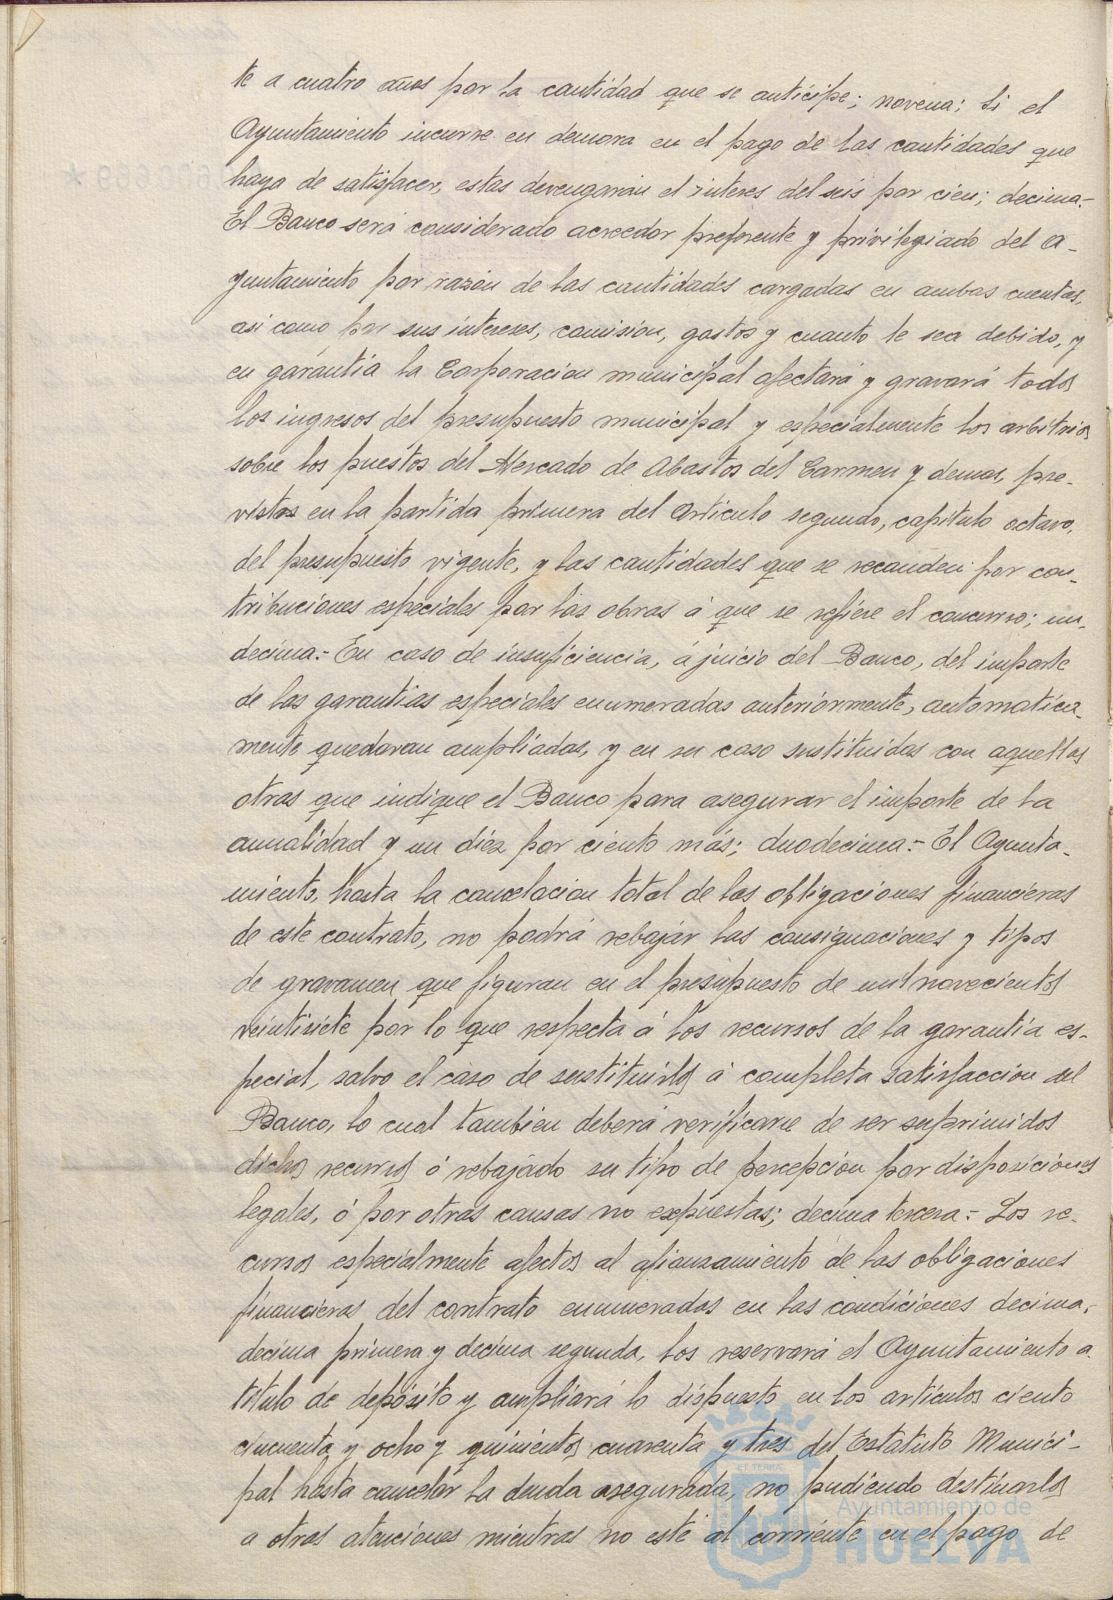 te a cuatro años por la cantidad que se anticipe; novena: Si el
Ayuntamiento incurre en demora en el pago de las cantidades que
haya de satisfacer, estas devengarán el interes del seis por cien; decima.-
El Banco será considerado acreedor preferente y privilegiado del A-
yuntamiento por razón de las cantidades cargadas en ambas cuentas,
asi como por sus intereses, comisión, gastos y cuanto le sea debido, y
en garantia la Corporacion municipal afectará y gravará todos
los ingresos del presupuesto municipal y especialmente los arbitrios
sobre los puestos del Mercado de Abastos del Carmen y demas, pre-
vistos en la partida primera del Articulo segundo, capitulo octavo,
del presupuesto vigente, y las cantidades que se recauden por con-
tribuciones especiales por las obras á que se refiere el concurso; un-
decima:- En caso de insuficiencia, á juicio del Banco, del importe
de las garantias especiales enumeradas anteriormente, automatica-
mente quedaran ampliadas, y en su caso sustituidas con aquellas
otras que indique el Banco para asegurar el importe de la
anualidad y un diez por ciento más; duodecima:- El Ayunta-
miento, hasta la cancelacion total de las obligaciones financieras
de este contrato, no podrá rebajar las consignaciones y tipos
de gravamen que figuran en el presupuesto de mil novecientos
veintisiete por lo que respecta á los recursos de la garantia es-
pecial, salvo el caso de sustituirlos á completa satisfaccion del
Banco, lo cual tambien deberá verificarse de ser suprimidos
dichos recursos ó rebajado su tipo de percepción por disposiciones
legales, ó por otras causas no expuestas; decima tercera:- Los re-
cursos especialmente afectos al afianzamiento de las obligaciones
financieras del contrato enumeradas en las condiciones decima,
decima primera y decima segunda, los reservará el Ayuntamiento a
titulo de depósito y ampliará lo dispuesto en los articulos ciento
cincuenta y ocho y quinientos cuarenta y tres del Estatuto Munici-
pal hasta cancelar la deuda asegurada, no pudiendo destinarlos
a otras atenciones mientras no esté al corriente en el pago de
Ayuntamiento de
HUELVA